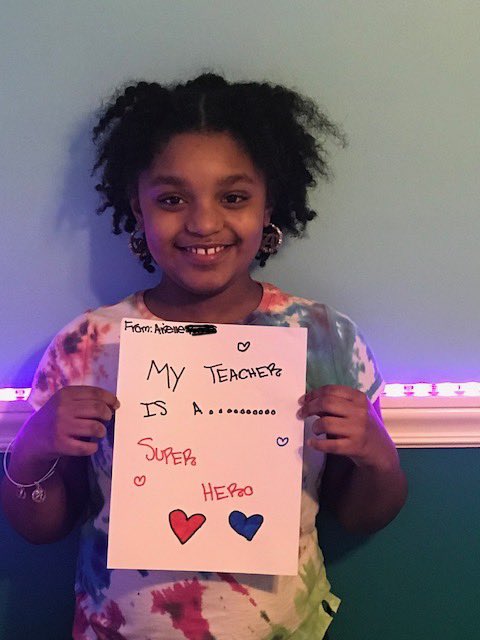 From: Arielle
My Teacher
is a..........
Super
Hero